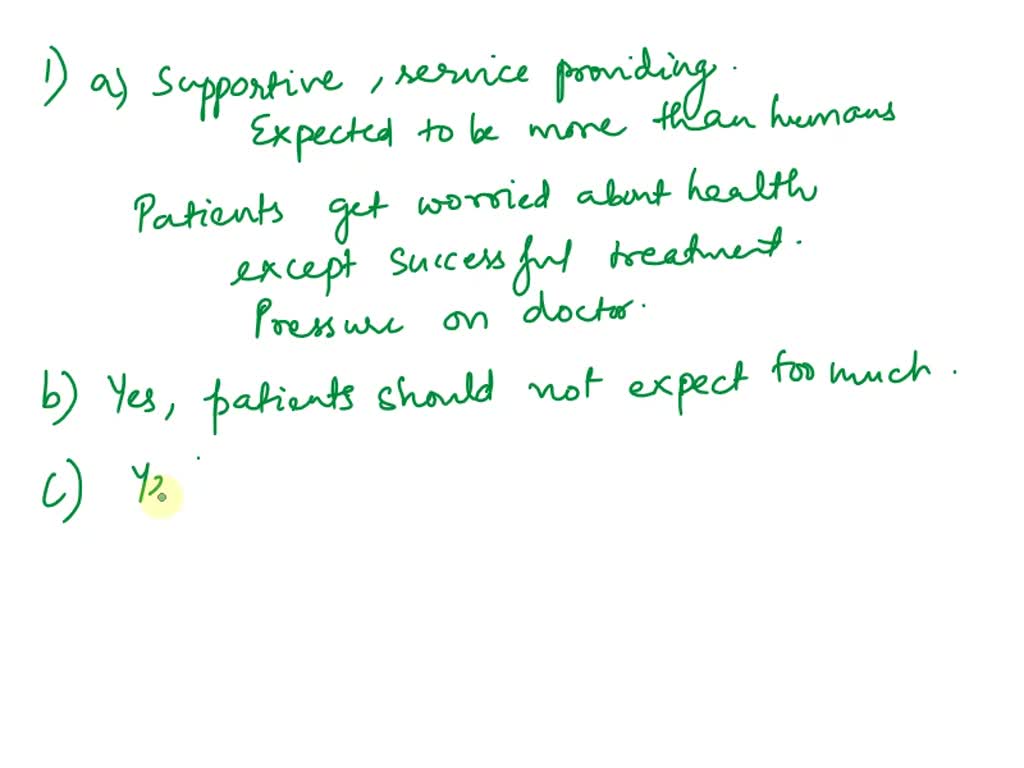 1) a) Supportive, service providing.
Expected to be more than humans
Patients get worried about health
except successful treatment.
Pressure on doctor.
b) Yes, patients should not expect too much.
c)